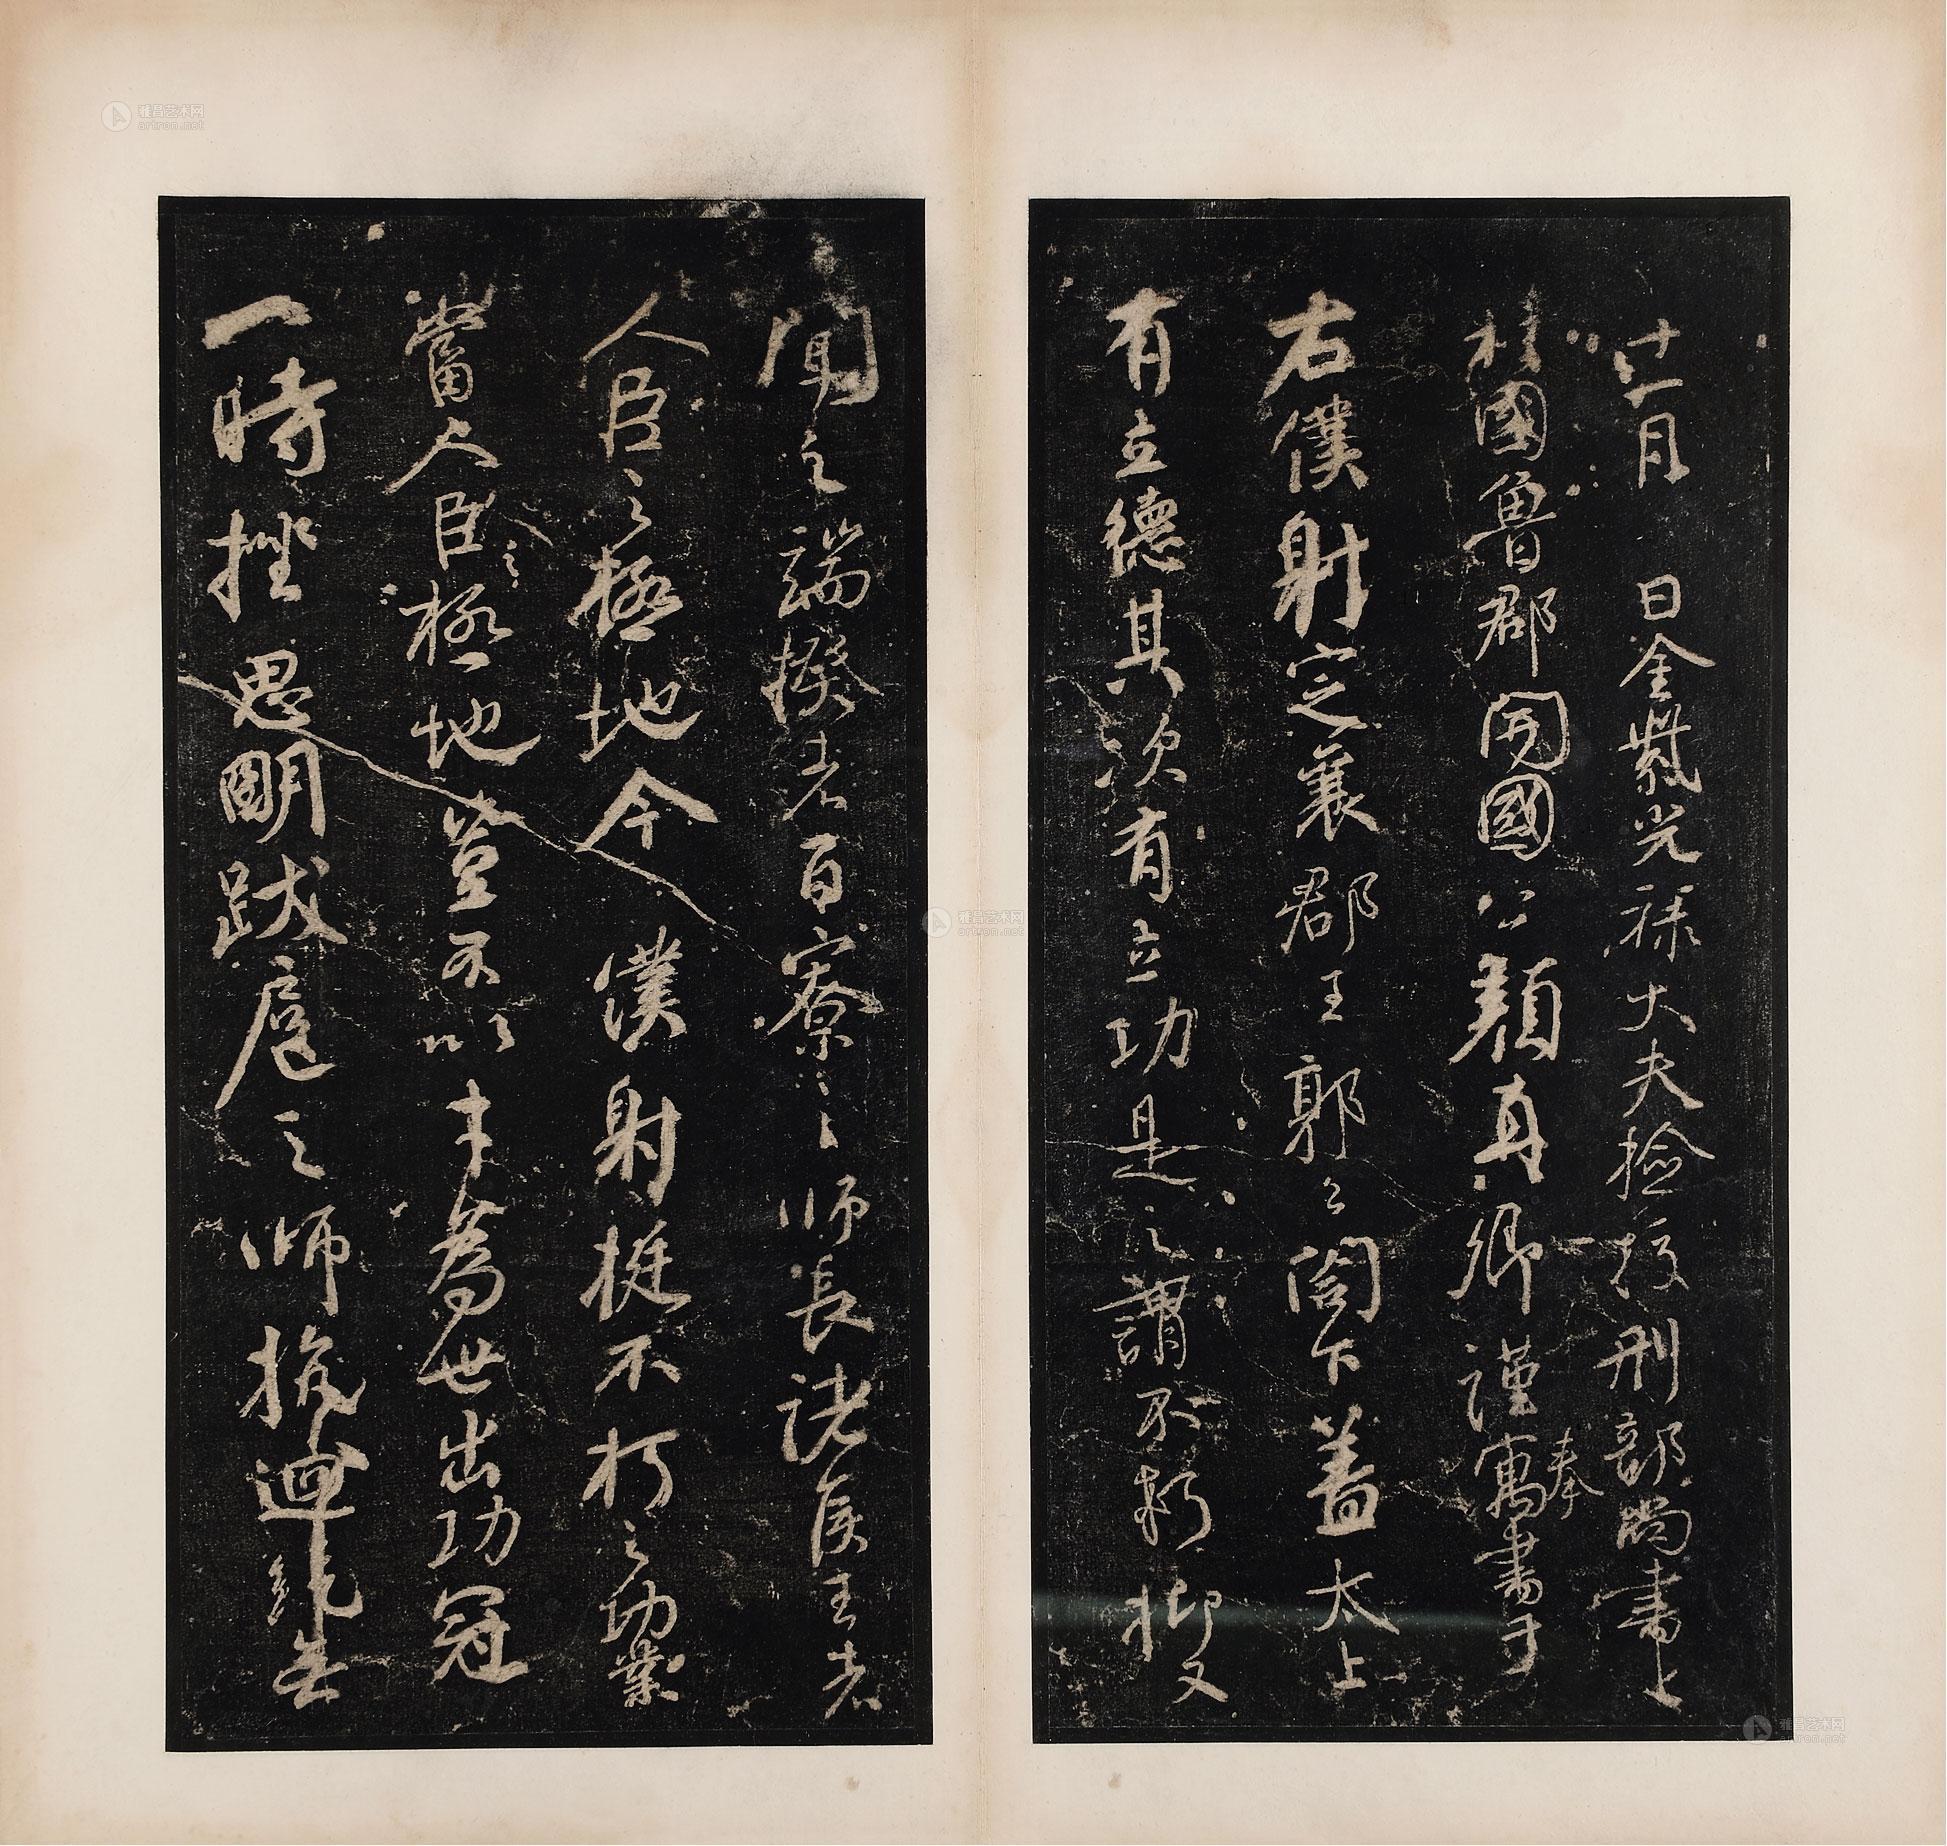 十一月 日金紫光祿大夫檢校刑部尚書上
柱國魯郡開國公顏真卿謹寓書于
奉
右僕射定襄郡王郭公閤下蓋太上
有立德其次有立功是之謂不朽抑又
聞之端揆者百寮之師長諸侯王者
人臣之極地今僕射挺不朽之功業
當人臣極地豈不以才為世出功冠
之
一時挫思明跋扈之師抗迴紇無
雅昌艺术网
artron.net
雅昌艺术网
artron.net
雅昌艺术网
artron.net